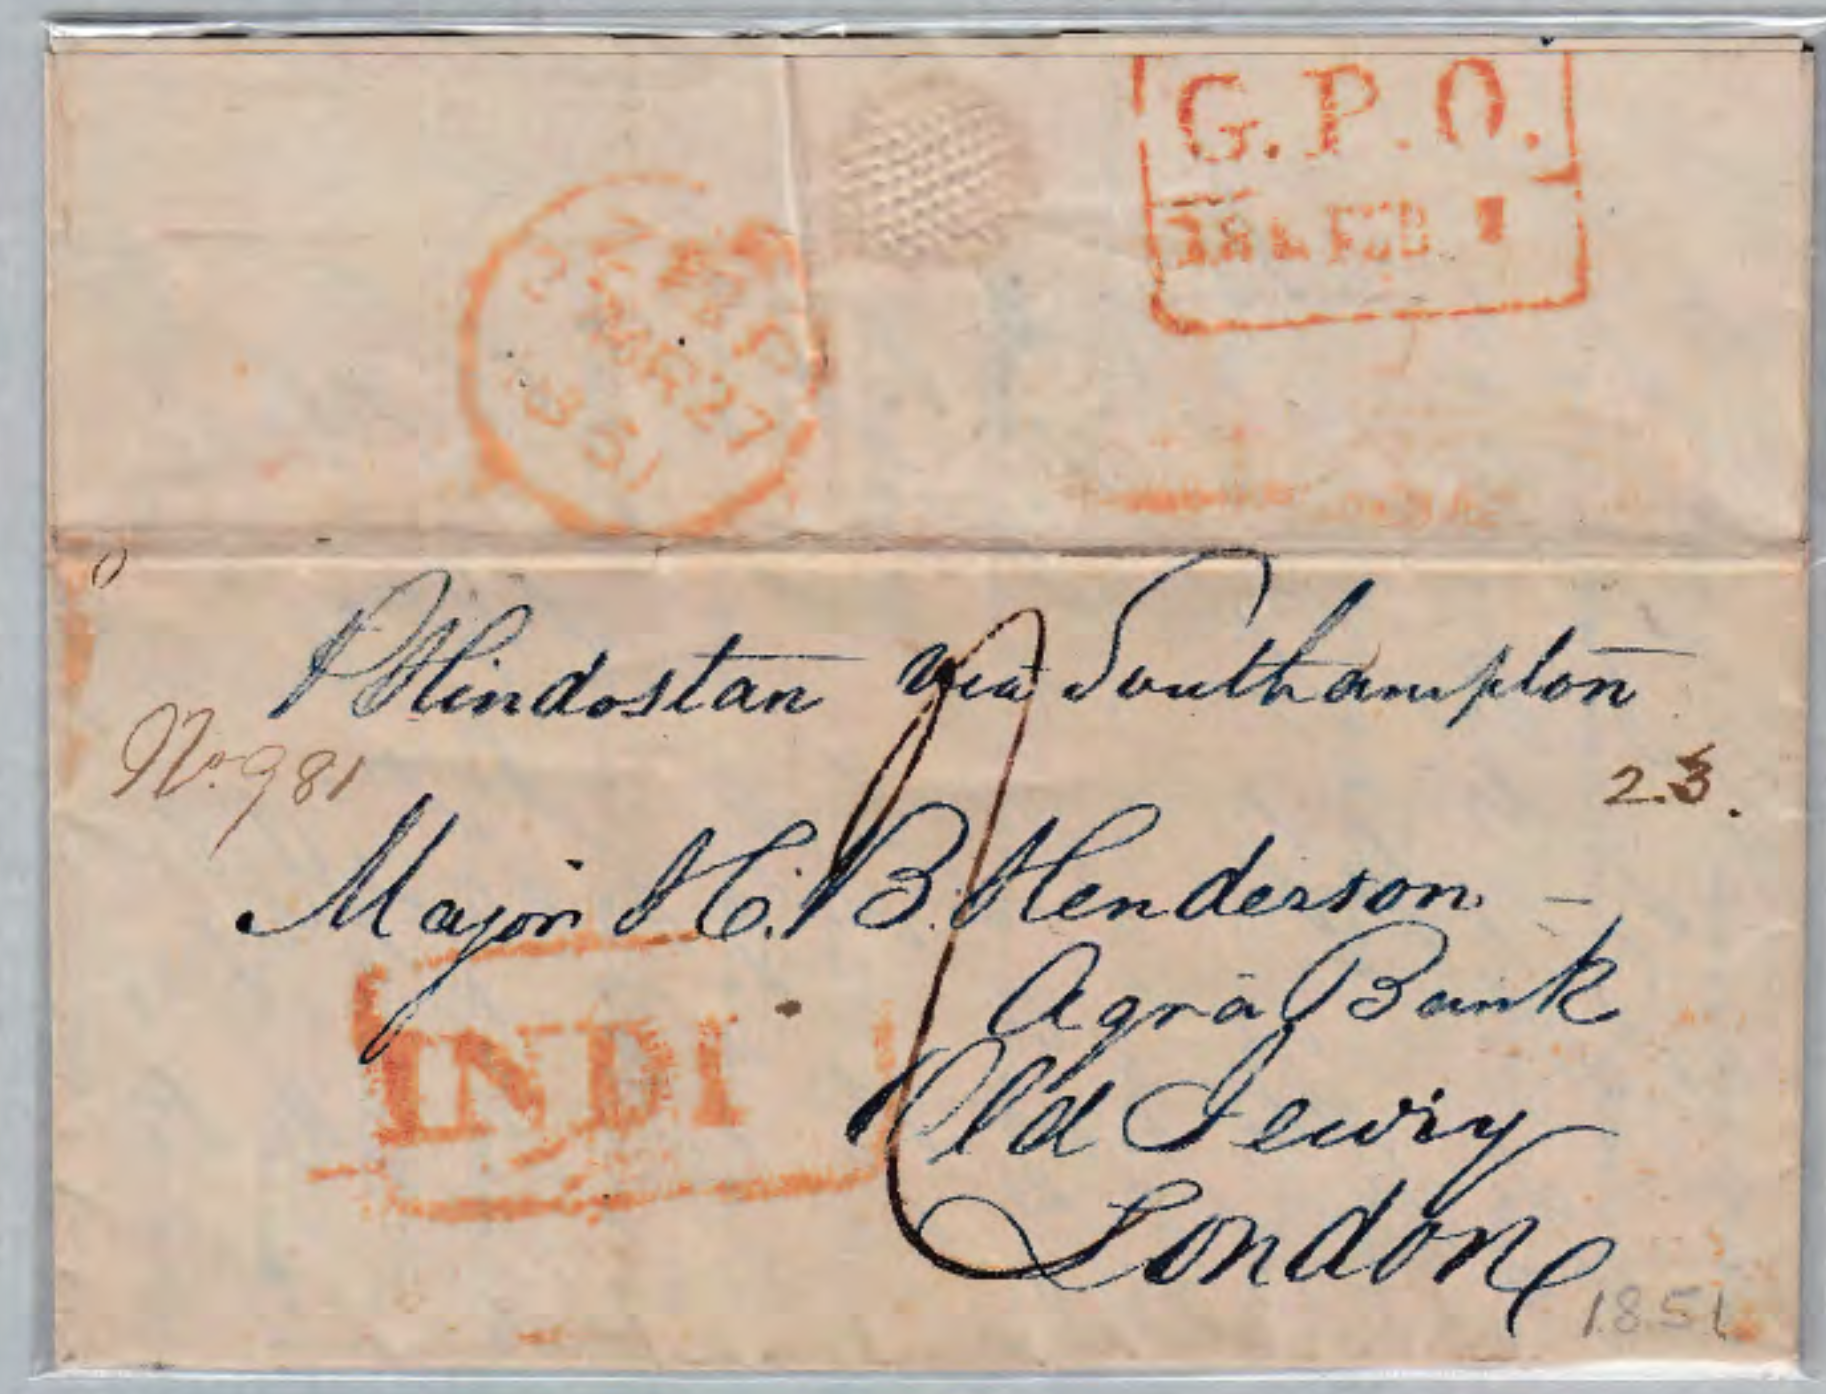 G.P.O.
FEB
MAR 27
1851
P Hindostan via Southampton
No. 981
2.3.
Major H. B. Henderson
Agra Bank
Old Jewry
London
INDI
1851